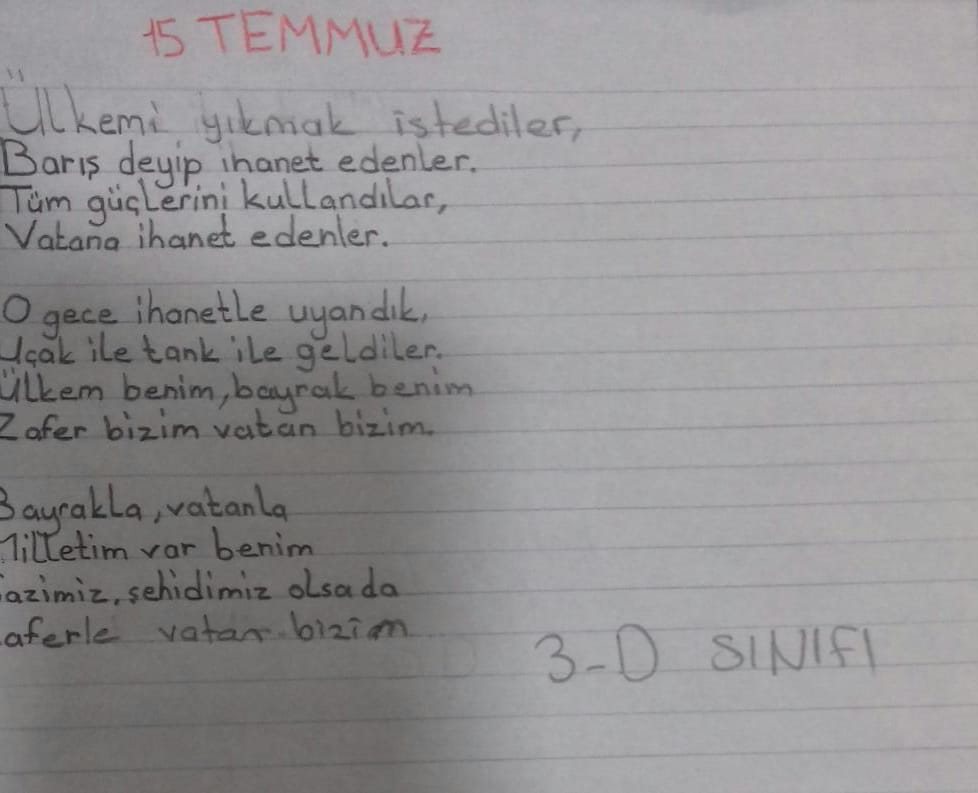 15 TEMMUZ
Ülkemi yıkmak istediler,
Barış deyip ihanet edenler.
Tüm güçlerini kullandılar,
Vatana ihanet edenler.
O gece ihanetle uyandık,
Uçak ile tank ile geldiler.
Ülkem benim, bayrak benim
Zafer bizim vatan bizim.
Bayrakla, vatanla
Milletim var benim
azimiz, şehidimiz olsada
aferle vatan bizim
3-D SINIFI